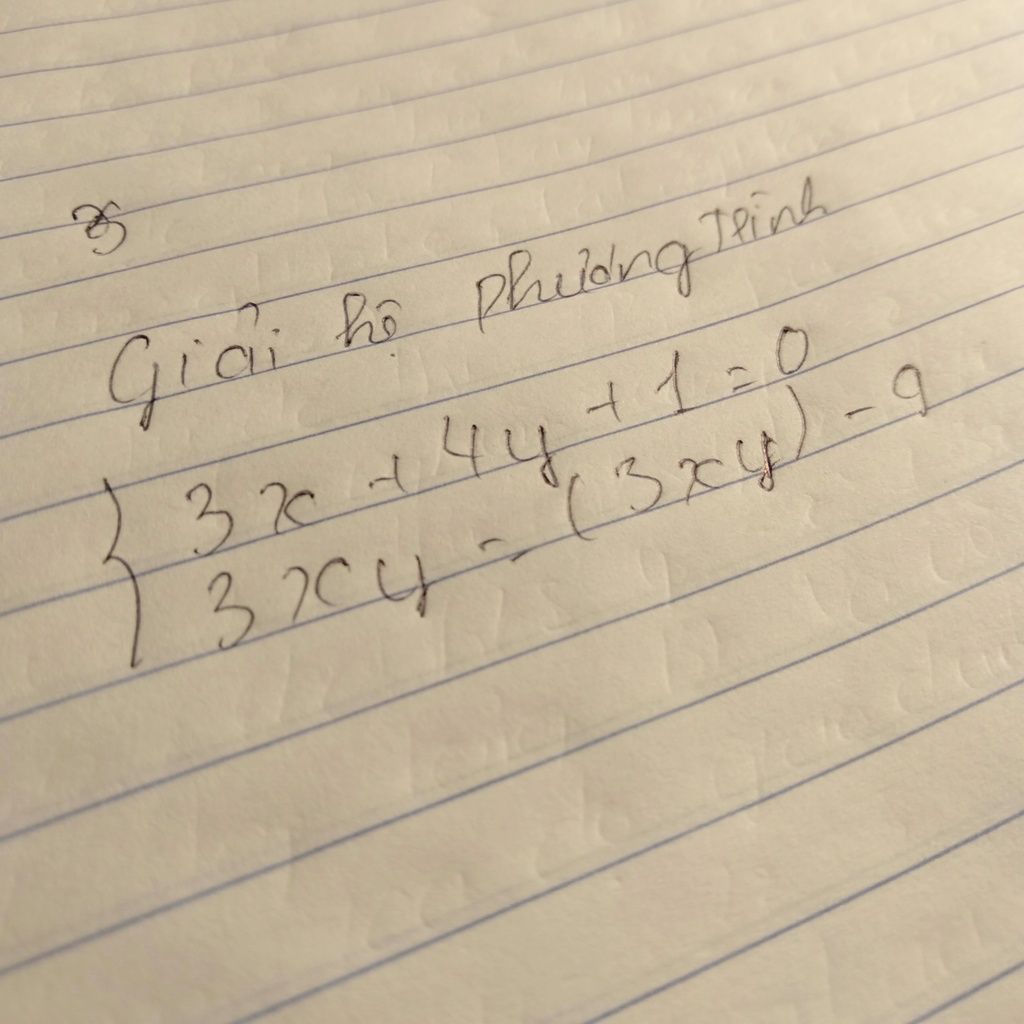 Giải hệ phương trình
3x + 4y + 1 = 0
3xy = (3xy) - 9